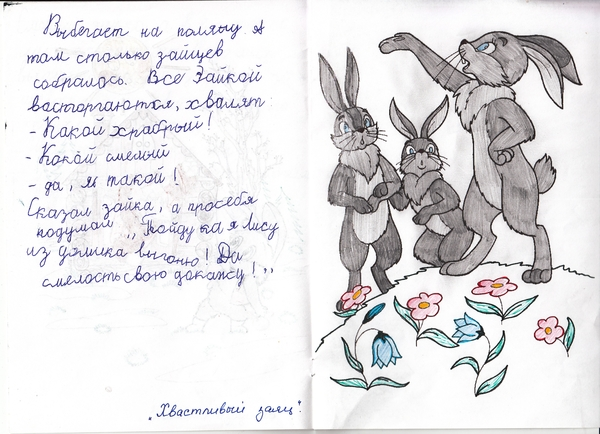 Выбегает на поляну А
там столько зайцев
собралось. Все Зайкой
восторгаются, хвалят:
- Какой храбрый!
- Какой смелый
- да, я такой!
Сказал зайка, а просебя
подумал „Пойду ка я Лису
из домика выгоню! Да
смелость свою докажу!"
„Хвастливый заяц".